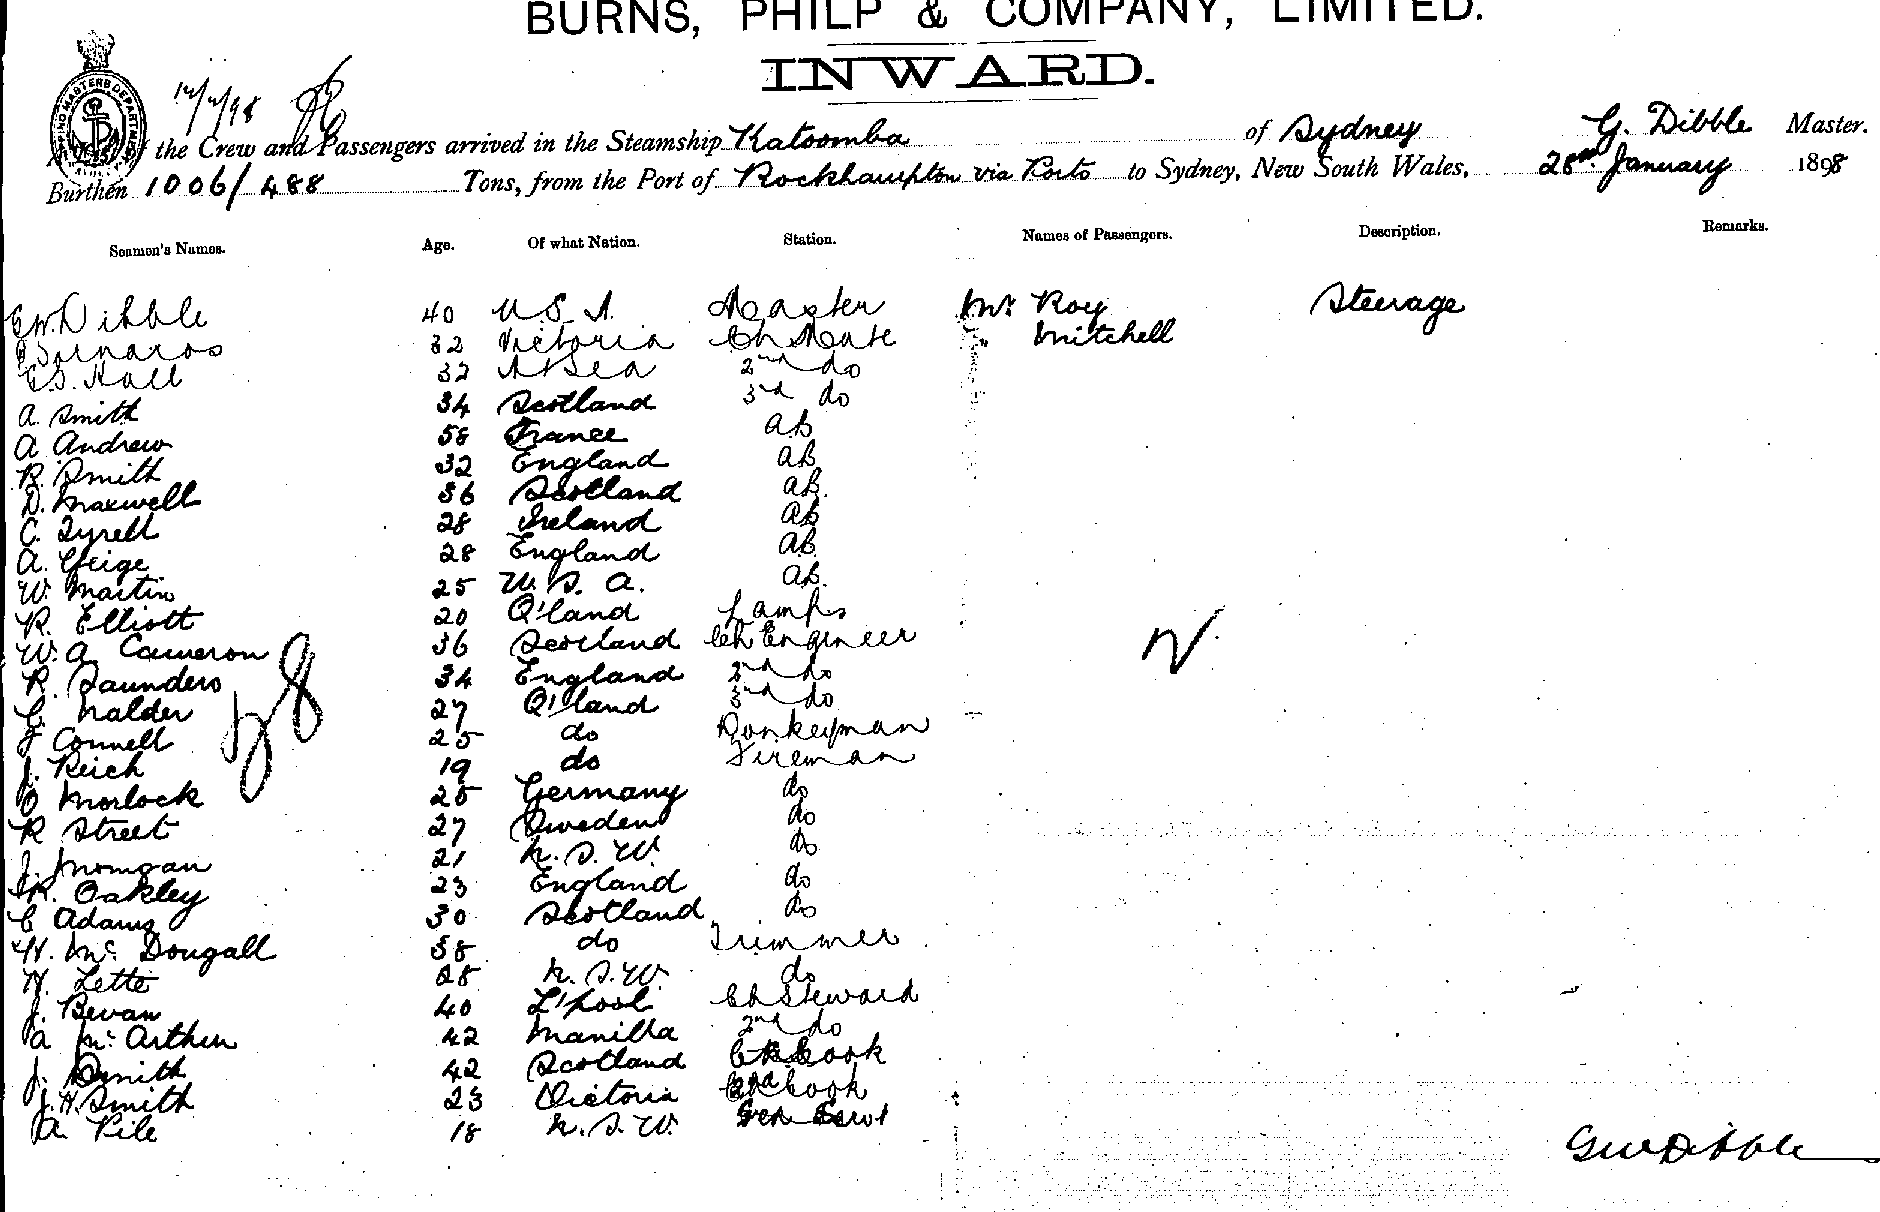 BURNS, PHILP & COMPANY, LIMITED.
INWARD.
the Crew and Passengers arrived in the Steamship Katoomba of Sydney G. Dibble Master.
Burthen 1006/488 Tons, from the Port of Rockhampton via Ports to Sydney, New South Wales, 28th January 1898
Seamen's Names. Age. Of what Nation. Station. Names of Passengers. Description. Remarks.
G.W. Dibble 40 U S A Master Mr Roy Steerage
32 Victoria Ch Mate " Mitchell
E.S. Hall 32 At Sea 2nd do
A. Smith 34 Scotland 3rd do
A Andrew 58 France AB
R. Smith 32 England AB
D. Maxwell 36 Scotland AB.
C. Tyrell 28 Ireland AB
A. Geige 28 England AB
W. Martin 25 U. S. A. AB.
R. Elliott 20 Q'land Lamps
W. A. Cameron 36 Scotland Ch Engineer
R. Saunders 34 England 2nd do
C. Nalder 27 Q'land 3rd do
J Connell 25 do Donkeyman
J. Reich 19 do Fireman
O Morlock 25 Germany do
R Street 27 Sweden do
J. Morrgan 21 N. S. W. do
R. Oakley 23 England do
C Adams 30 Scotland do
H. Mc Dougall 38 do Trimmer
H. Lette 28 N. S. W. do
J. Bevan 40 L'pool Ch Steward
A Mc Arthur 42 Manilla 2nd do
J. Smith 42 Scotland Cook
J. H. Smith 23 Victoria 2nd Cook
A. Pile 18 N. S. W.
Geo W Dibble